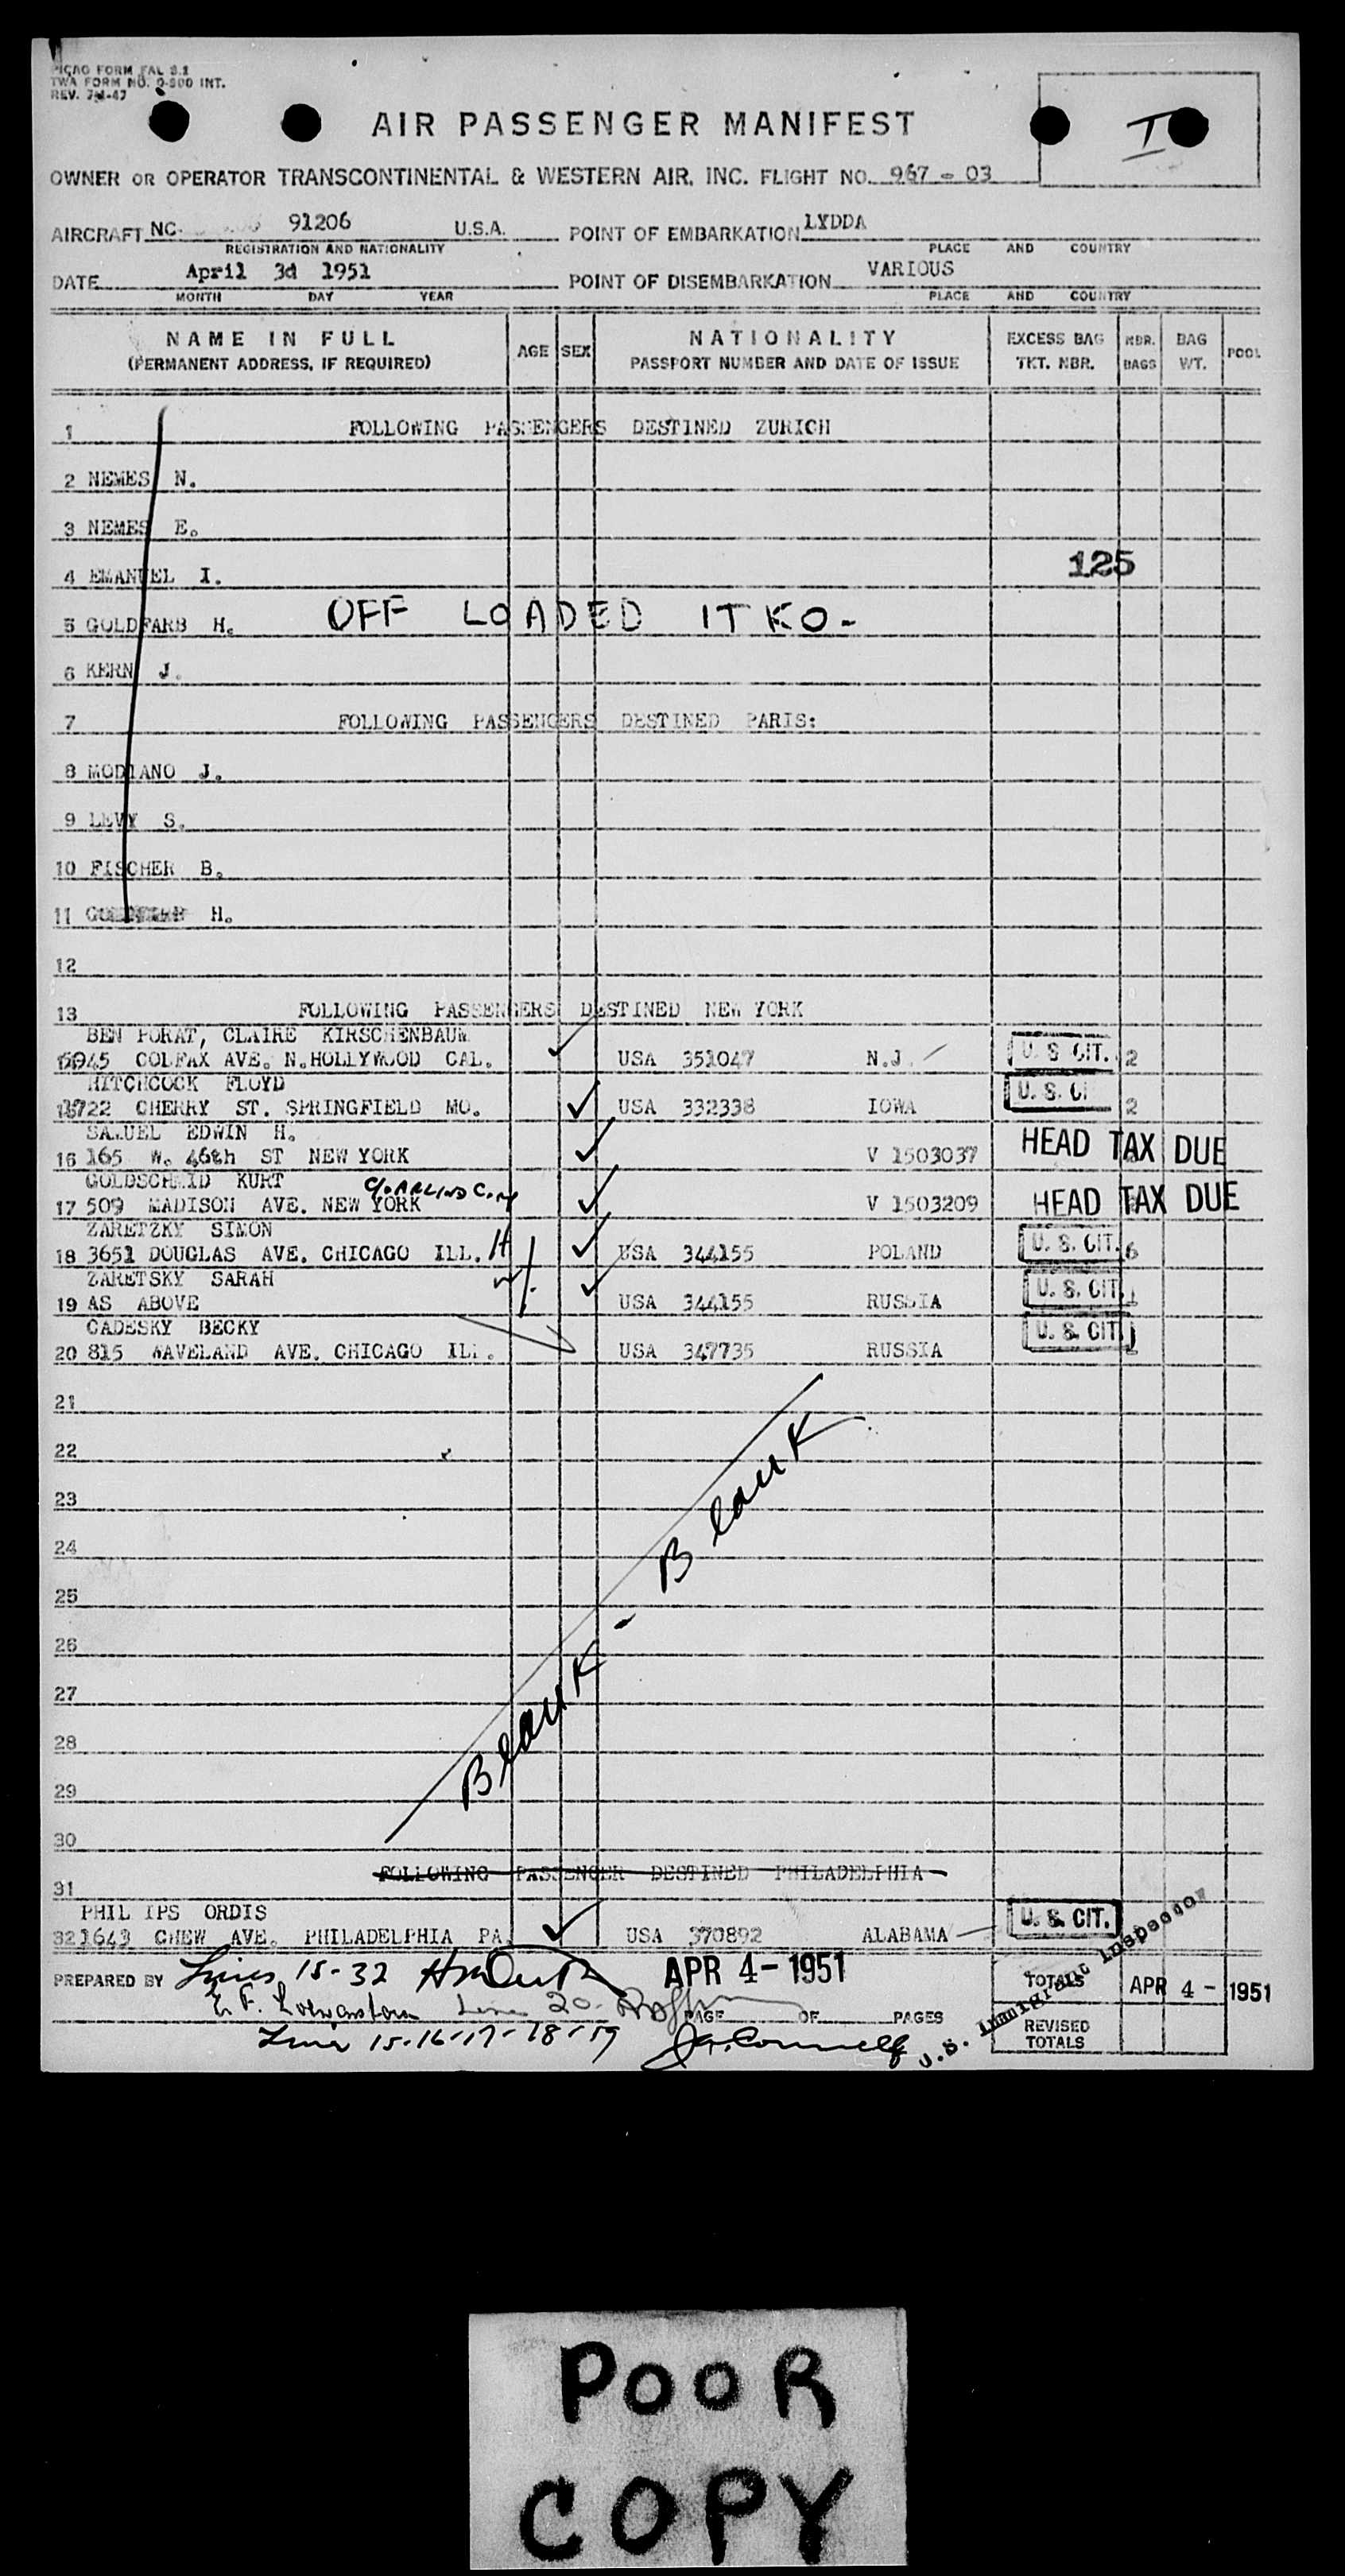 PICAO FORM FAL 2.1
TWA FORM NO. 0-300 INT.
REV. 7-1-47
AIR PASSENGER MANIFEST
I
OWNER OR OPERATOR TRANSCONTINENTAL & WESTERN AIR, INC. FLIGHT NO. 967 - 03
AIRCRAFT NC- 91206 U.S.A. POINT OF EMBARKATION LYDDA
REGISTRATION AND NATIONALITY PLACE AND COUNTRY
DATE April 3d 1951 POINT OF DISEMBARKATION VARIOUS
MONTH DAY YEAR PLACE AND COUNTRY
NAME IN FULL AGE SEX NATIONALITY EXCESS BAG NBR. BAG POOL
(PERMANENT ADDRESS, IF REQUIRED) PASSPORT NUMBER AND DATE OF ISSUE TKT. NBR. BAGS WT.
1 FOLLOWING PASSENGERS DESTINED ZURICH
2 NEMES N.
3 NEMES E.
4 EMANUEL I. 125
5 GOLDFARB H. OFF LOADED ITKO-
6 KERN J.
7 FOLLOWING PASSENGERS DESTINED PARIS:
8 MODIANO J.
9 LEVY S.
10 FISCHER B.
11 H.
12
13 FOLLOWING PASSENGERS DESTINED NEW YORK
BEN PORAT, CLAIRE KIRSCHENBAUM
COLFAX AVE. N.HOLLYWOOD CAL. USA 351047 N.J. U. S. CIT. 2
HITCHCOCK FLOYD
CHERRY ST. SPRINGFIELD MO. USA 332338 IOWA U. S. CI 2
SAMUEL EDWIN H.
16 165 W. 46th ST NEW YORK V 1503037 HEAD TAX DUE
GOLDSCHMID KURT
17 509 MADISON AVE. NEW YORK V 1503209 HEAD TAX DUE
ZARETZKY SIMON
18 3651 DOUGLAS AVE. CHICAGO ILL. H USA 344155 POLAND U. S. CIT. 6
ZARETSKY SARAH
19 AS ABOVE W USA 344155 RUSSIA U. S. CIT. 1
CADESKY BECKY
20 815 WAVELAND AVE. CHICAGO ILL. USA 347735 RUSSIA U. S. CIT. 1
21
22
23
24
25
26
27
28
29
30
Blank - Blank
FOLLOWING PASSENGER DESTINED PHILADELPHIA
31
PHILIPS ORDIS
32 1643 CHEW AVE. PHILADELPHIA PA. USA 370892 ALABAMA U. S. CIT.
PREPARED BY Lines 15-32 APR 4 - 1951 TOTALS APR 4 - 1951
Line 20 PAGE OF PAGES REVISED TOTALS
Line 15-16-17-18-19
U.S. Immigrant Inspector
POOR
COPY